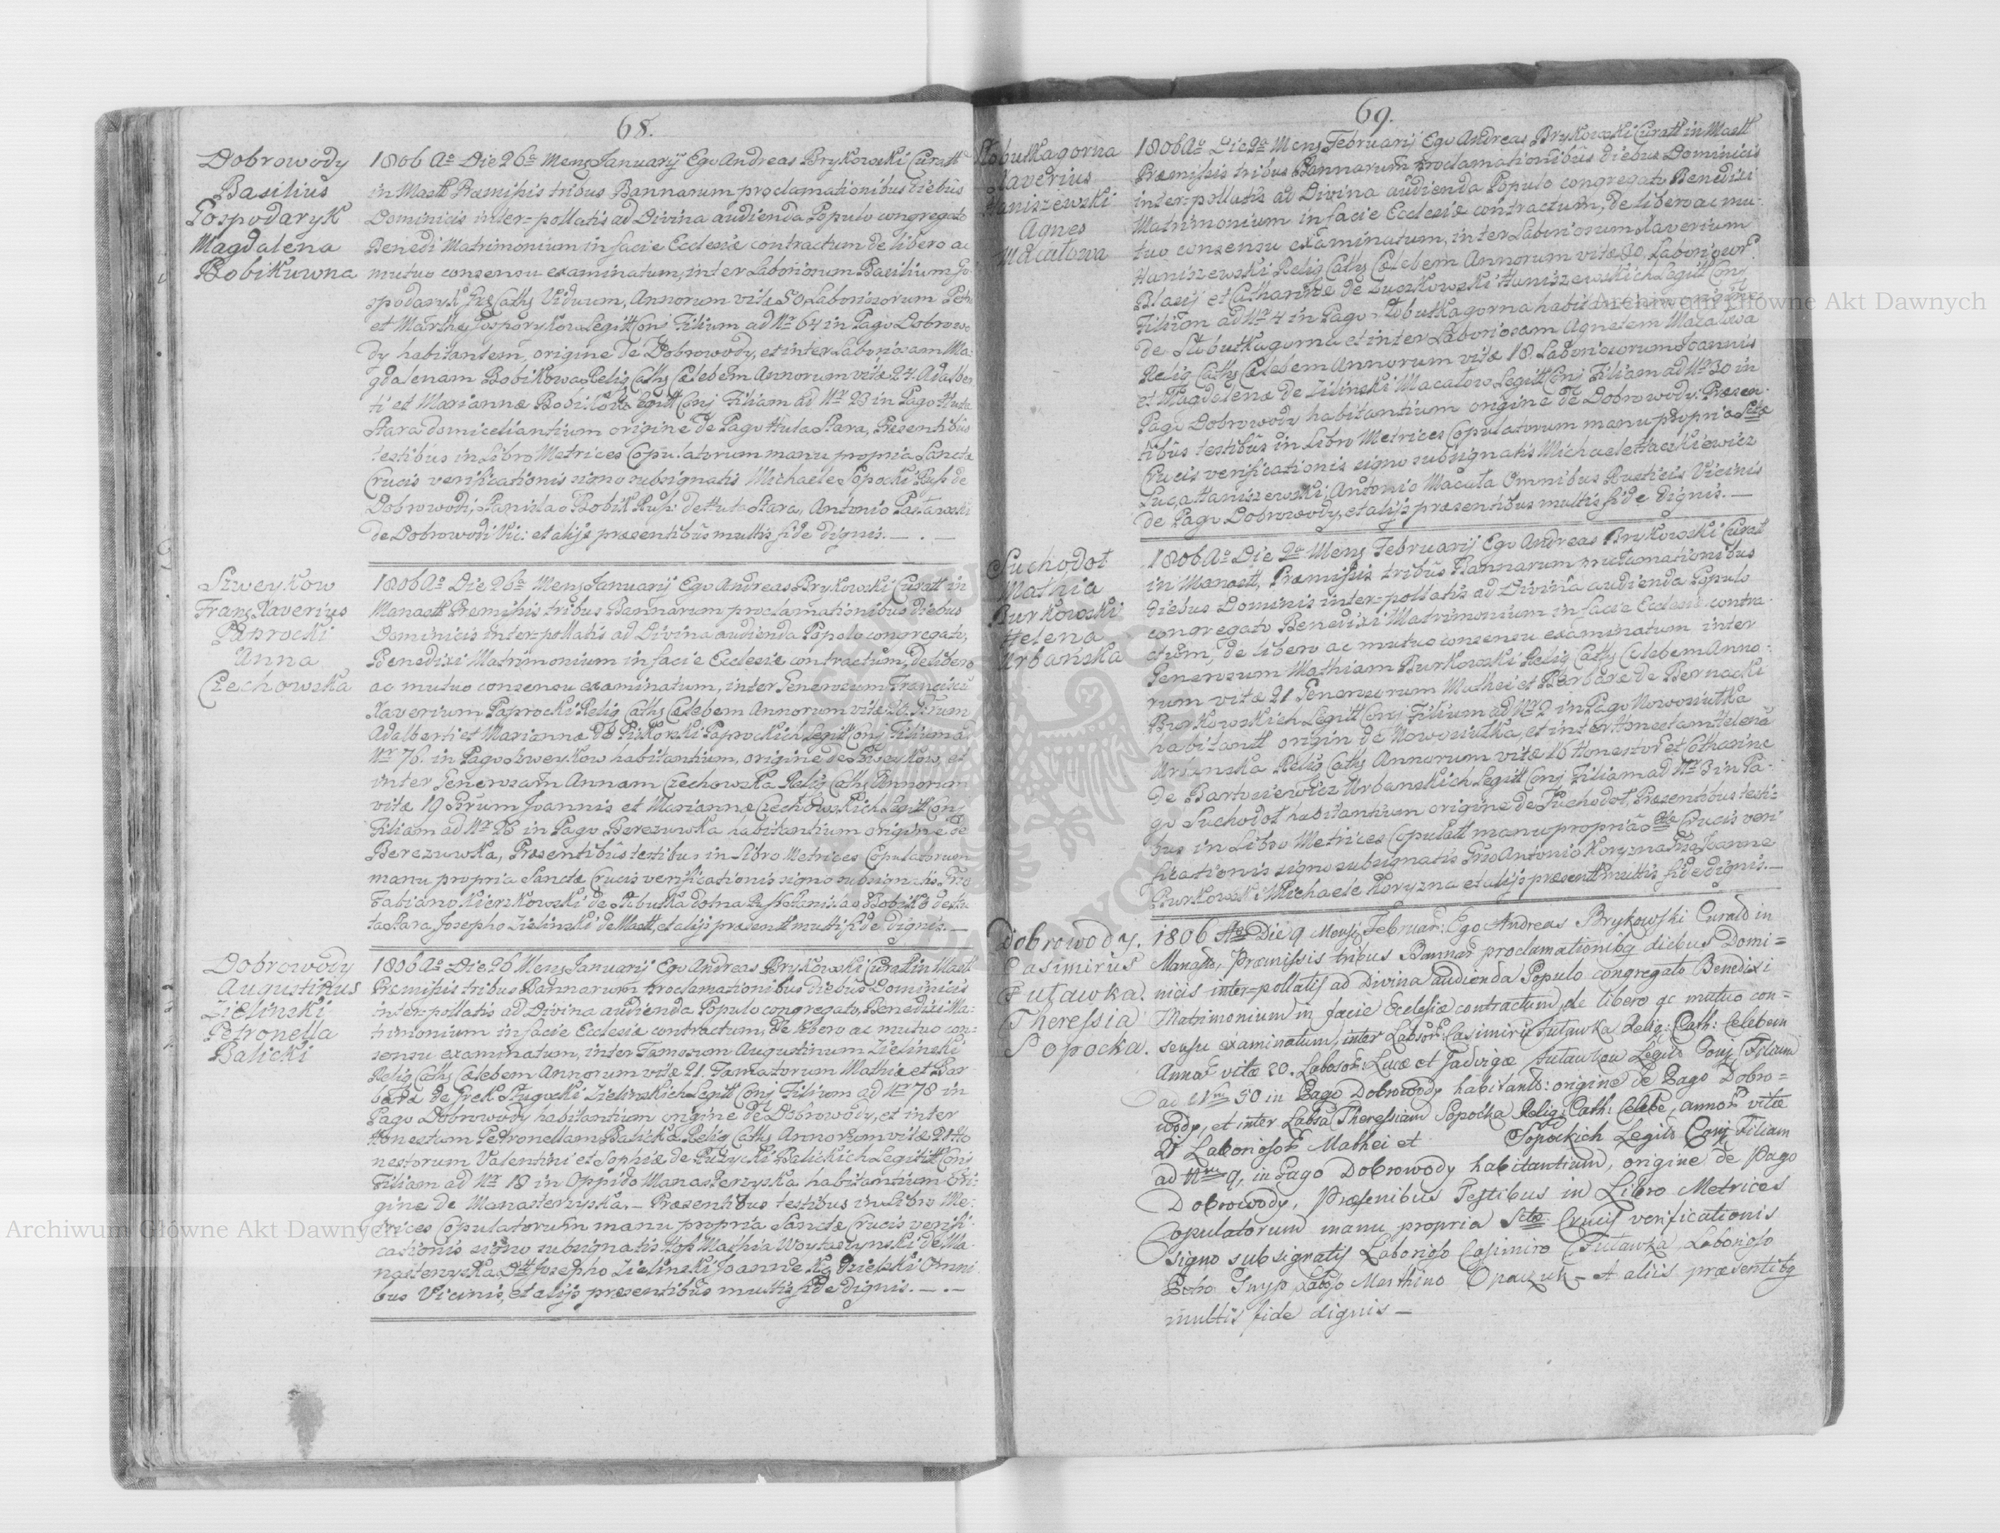 68.
Dobrowody
Basilius
Gospodaryk
Magdalena
Bobikowna
1806 Ao Die 26a Mens Januarij Ego Andreas Brykowski Curatt
in Mastt Præmißis tribus Bannarum proclamationibus diebus
Dominicis inter-pollatis ad Divina audienda Populo congregato
Benedi Matrimonium in facie Ecclesiæ contractum de libero ac
mutuo consensu examinatum, inter Laboriosum Basilium Go
spodaryk Cath Viduum, Annorum vitæ 50 Laboriosorum Petri
et Marthæ Legitt Conj Filium ad Nr 64 in Pago Dobrowo
dy habitantem, origine de Dobrowody, et inter Laboriosam Ma
gdalenam Bobikowa Relig Cath Cælebem Annorum vitæ 24. Adalber
ti et Mariannæ Legitt Conj Filiam ad Nr 23 in Pago Huta
Stara domiceliantium origine de Pago Huta Stara, Præsentibus
testibus in Libro Metrices Copulatorum manu propria Sanctæ
Crucis verificationis signo subsignatis Michaele Sopocki de
Dobrowodi, Stanislao Bobik de Huta Stara, Antonio
de Dobrowodi Vic: et alijs præsentibus multis fide dignis.
Szweykow
Franz Xaverius
Paprocki
Anna
Czechowska
1806 Ao Die 26a Mens Januarij Ego Andreas Brykowski Curatt in
Manastt Premißis tribus Bannarum proclamationibus diebus
Dominicis inter-pollatis ad Divina audienda Populo congregato,
Benedixi Matrimonium in facie Ecclesiæ contractum, de libero
ac mutuo consensu examinatum, inter Generosum Franciscu
Xaverium Paprocki Relig Cath Cælebem Annorum vitæ
Adalberti et Mariannæ de Paprockich Legitt Conj Filium ad
Nr 76. in Pago Szweykow habitantium, origine de Szweykow, et
inter Generosam Annam Czechowska Relig Cath Annorum
vitæ 19 Joannis et Mariannæ Czechowskich Legitt Conj
Filiam ad Nr 23 in Pago Berezuwka habitantium origine de
Berezuwka, Præsentibus testibus in Libro Metrices Copulatorum
manu propria Sanctæ Crucis verificationis signo subsignatis
Fabiano Kierzkowski de Stobutka Dolna Stanislao Bobik de Hu
ta Stara, Josepho Zielinski de Mastt, et alijs præsentt multis fide dignis.
Dobrowody
Augustinus
Zielinski
Petronella
Balicki
1806 Ao Die 26 Mens Januarij Ego Andreas Brykowski Curatt in Mast.
Premißis tribus Bannarum proclamationibus diebus Dominicis
inter-pollatis ad Divina audienda Populo congregato, Benedixi Ma-
trimonium in facie Ecclesiæ contractum, de libero ac mutuo con-
sensu examinatum, inter Famosum Augustinum Zielinski
Relig Cath Cælebem Annorum vitæ 21. Famatorum Mathiæ et Bar
baræ de Zielinskich Legitt Conj Filium ad Nr 78 in
Pago Dobrowody habitantium origine de Dobrowody, et inter
Honestam Petronellam Balicka Relig Cath Annorum vitæ Ho
nestorum Valentini et Sophiæ de Balickich Legittt Conj
Filiam ad Nr 18 in Oppido Manasterzyska habitantium Ori-
gine de Manasterzyska. Præsentibus testibus in Libro Me-
trices Copulatorum manu propria Sanctæ Crucis verifi-
cationis signo subsignatis Mathia de Ma-
nasterzyska, Josepho Zielinski Joanne Omni
bus Vicinis, et alijs præsentibus multis fide dignis.
69.
Stobutkagorna
Xaverius
Haniszewski
Agnes
Macałowa
1806 Ao Die 2a Mens Februarij Ego Andreas Brykowski Curatt in Mastt
Præmißis tribus Bannarum proclamationibus diebus Dominicis
inter-pollatis ad Divina audienda Populo congregato Benedixi
Matrimonium in facie Ecclesiæ contractum, de libero ac mu-
tuo consensu examinatum, inter Laboriosum Xaverium
Haniszewski Relig Cath Cælebem Annorum vitæ 20. Laborioso.
Blasij et Catharinæ de Luszkowski Haniszewskich Legitt Conj
Filium ad Nr 4 in Pago Stobutkagorna habitantium origine
de Stobutkagorna et inter Laboriosam Agnetem Macałowa
Relig Cath Cælebem Annorum vitæ 18 Laboriosorum Joannis
et Magdalenæ de Zilinski Macałow Legitt Conj Filiam ad Nr 30 in
Pago Dobrowody habitantium origine de Dobrowody. Præsen-
tibus testibus in Libro Metrices Copulatorum manu propria Sctæ
Crucis verificationis signo subsignatis Michaele
Luca Haniszewski, Antonio Macuła Omnibus Rusticis Vicinis
de Pago Dobrowody, et alijs præsentibus multis fide dignis.
Suchodoł
Mathia
Burkowski
Helena
Urbańska
1806 Ao Die 2a Mens Februarij Ego Andreas Brykowski Curatt
in Manastt, Præmißis tribus Bannarum
diebus Dominis inter-pollatis ad Divina audienda Populo
congregato Benedixi Matrimonium in facie Ecclesiæ contra-
ctum, de libero ac mutuo consensu examinatum inter
Generosum Mathiam Burkowski Relig Cath Cælebem Anno-
rum vitæ 21 Generosorum Mathei et Barbaræ de Bernacki
Burkowskich Legitt Conj Filium ad Nr 2 in Pago Nowosiułka
habitantt origin de Nowosiułka, et inter Honestam Helena
Urbanska Relig Cath Annorum vitæ 16 Honestor et Catharinæ
de Bartusiewicz Urbanskich Legitt Conj Filiam ad Nr 3 in Pa-
go Suchodoł habitantium origine de Suchodoł, Præsentibus testi-
bus in Libro Metrices Copulatt manu propria Sctæ Crucis veri-
ficationis signo subsignatis Antonio Koryzna Joanne
Burkowski Michaele Koryzna et alijs præsentt multis fide dignis.
Dobrowody.
Casimirus
Futawka.
Theressia
Sopocka.
1806 Ao Die 9 Mensij Februar: Ego Andreas Brykowski Curatd in
Manast, Præmissis tribus Bannar proclamationibq diebus Domi=
nicis inter=pollatis ad Divina audienda Populo congregato Benedixi
Matrimonium in facie Eclesiæ contractum, de libero ac mutuo con=
sensu examinatum, inter Labsor: Casimiru Futawka Relig: Cath: Celebem
Anno vitæ 20. Labosor: Lucæ et Jadvigæ Futawkou Legitt Conj Filium
ad Nrum 50 in Pago Dobrowody habitantt: origine de Pago Dobro=
wody, et inter Labsa Theressiam Sopocka Relig Cath: Celebe, annor vitæ
21 Laboriosor Mathei et Sopockich Legitt Conj Filiam
ad Nrum 9, in Pago Dobrowody habitantium, origine de Pago
Dobrowody, Præsenibus Testibus in Libro Metrices
Copulatorum manu propria Sctæ Crucis verificationis
signo subsignatis Laborioso Casimiro Futawka, Laborioso
Petro Laboso Marthino Opaczuk et aliis præsentibq
multis fide dignis
Archiwum Główne Akt Dawnych
Archiwum Główne Akt Dawnych